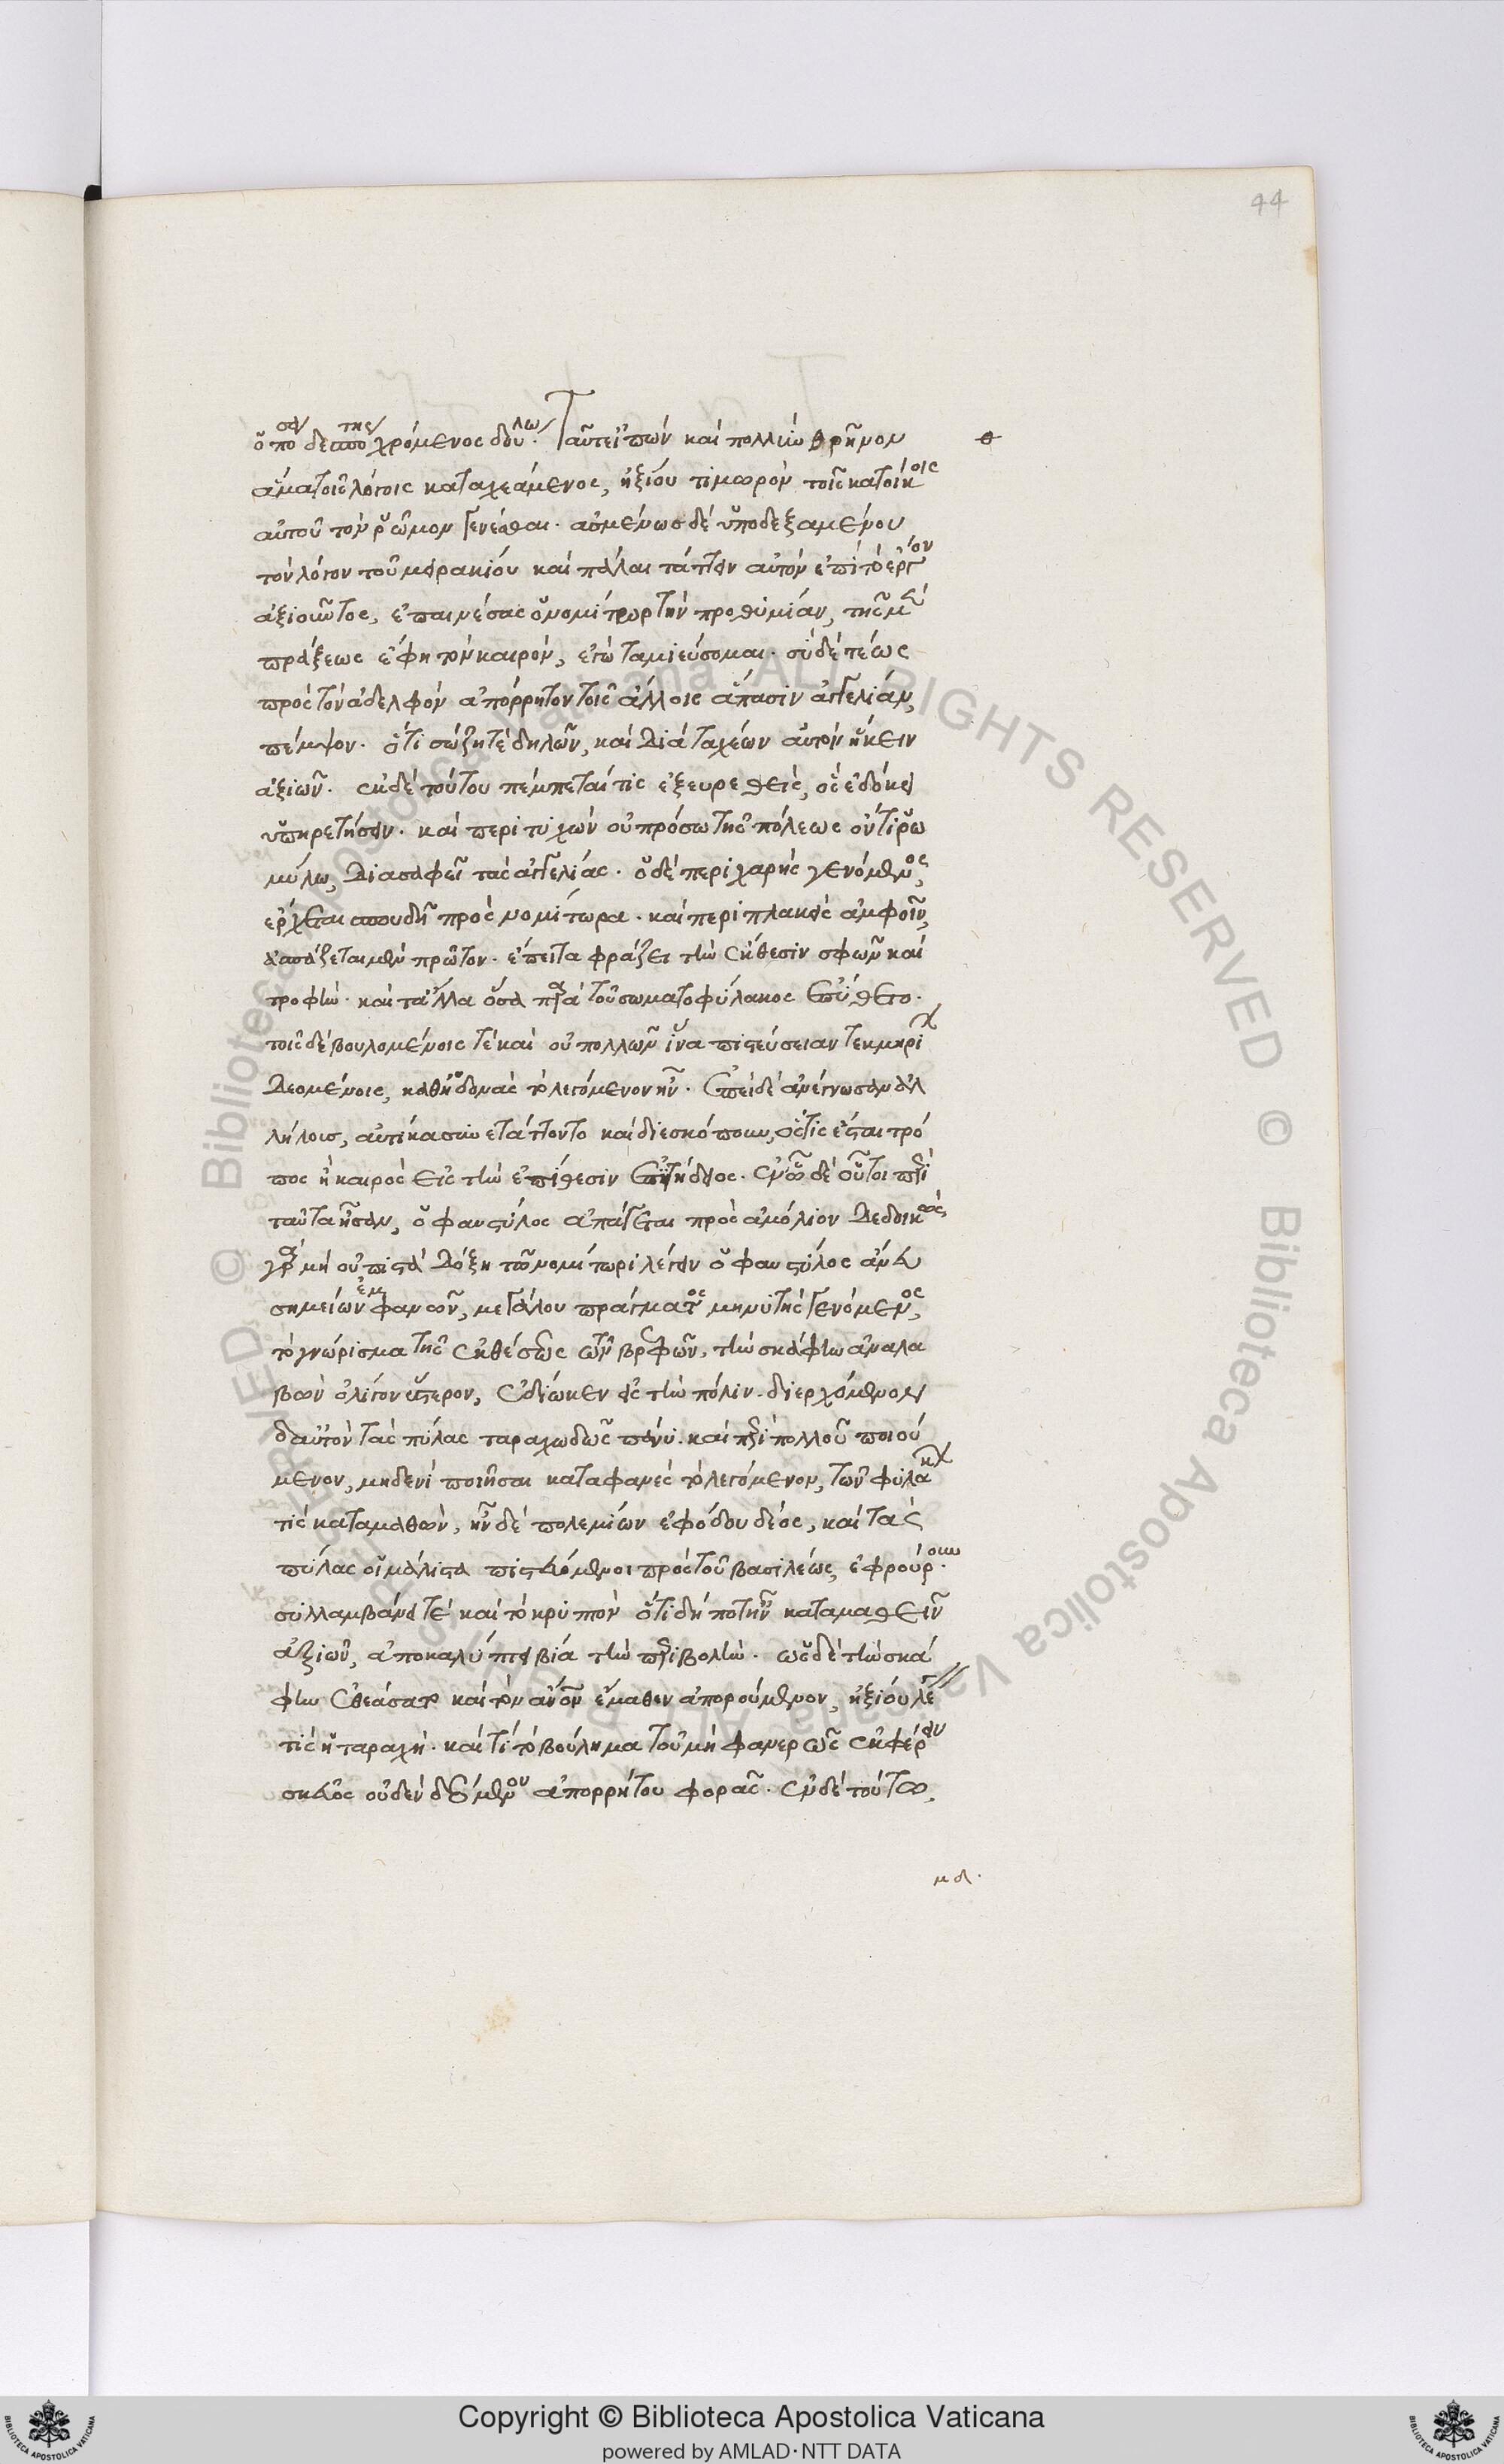 44
ὅποσα δεσπότης χρώμενος δούλω. Ταῦτ' εἰπὼν καὶ πολλὴν θρῆνον
ἅμα τοῖς λόγοις καταχεάμενος, ἠξίου τιμωρὸν τοῖς κατοίκοις
αὐτοῦ τὸν ῥῶμον γενέσθαι. ἀσμένως δὲ ὑποδεξαμένου
τὸν λόγον τοῦ μειρακίου καὶ πάλαι τάττειν αὐτὸν ἐπὶ τὸ ἔργον
ἀξιοῦντος, ἐπαινέσας ὁ νομίτωρ τὴν προθυμίαν, τῆς μὲν
πράξεως ἔφη τὸν καιρὸν, ἐγὼ ταμιεύσομαι. σὺ δὲ τέως
πρὸς τὸν ἀδελφὸν ἀπόρρητον τοῖς ἄλλοις ἅπασιν ἀγγελίαν,
πέμψον. ὅτι σώζηταί τε δηλῶν, καὶ διὰ ταχέων αὐτὸν ἥκειν
ἀξιῶν. ἐκ δὲ τούτου πέμπεταί τις ἐξευρεθεὶς, ὃς ἐδόκει
ὑπηρετήσειν. καὶ περιτυχὼν οὐ πρόσω τῆς πόλεως ὄντι ῥω
μύλω, διασαφεῖ τὰς ἀγγελίας. ὁ δὲ περιχαρὴς γενόμενος,
ἔρχεται σπουδῇ πρὸς νομίτωρα. καὶ περιπλακεὶς ἀμφοῖν,
ἀσπάζεται μὲν πρῶτον. ἔπειτα φράζει τὴν ἔκθεσιν σφῶν καὶ
τροφὴν. καὶ τἄλλα ὅσα παρὰ τοῦ σωματοφύλακος ἐπύθετο.
τοῖς δὲ βουλομένοις τὲ καὶ οὐ πολλῶν ἵνα πιστεύσειαν τεκμηρί
δεομένοις, καθ' ἡδονὰς τὸ λεγόμενον ἦν. ἐπεὶ δὲ ἀνέγνωσαν ἀλ
λήλους, αὐτίκα συνετάττοντο καὶ διεσκόπουν, ὅστις ἔσται τρό
πος ἢ καιρὸς εἰς τὴν ἐπίθεσιν ἐπιτήδειος. ἐν ᾧ δὲ οὗτοι περὶ
ταῦτα ἦσαν, ὁ φαυστύλος ἀπάγεται πρὸς ἀμόλιον δεδοικὼς
γὰρ μὴ οὐ πιστὰ δόξη τῶ νομίτωρι λέγειν ὁ φαυστύλος ἄνευ
σημείων ἐμφανῶν, μεγάλου πράγματος μηνυτὴς γενόμενος,
τὸ γνώρισμα τῆς ἐκθέσεως τῶν βρεφῶν, τὴν σκάφην ἀναλα
βὼν ὀλίγον ὕστερον, ἐδίωκεν εἰς τὴν πόλιν. διερχόμενον
δ' αὐτὸν τὰς πύλας ταραχωδῶς πάνυ. καὶ περὶ πολλοῦ ποιού
μενον, μηδενὶ ποιῆσαι καταφανὲς τὸ λεγόμενον, τῶν φυλάκ
τὶς καταμαθὼν, ἦν δὲ πολεμίων ἐφόδου δέος, καὶ τὰς
πύλας οἱ μάλιστα πιστευόμενοι πρὸς τοῦ βασιλέως, ἐφρούρουν.
συλλαμβάνει τὲ καὶ τὸ κρυπτὸν ὅτι δήποτ' ἦν καταμαθεῖν
ἀξιῶν, ἀποκαλύπτει βία τὴν περιβολὴν. ὡς δὲ τὴν σκά
φην ἐθεάσατο καὶ τὸν ἄνον ἔμαθεν ἀπορούμενον, ἠξίου λέγ
τίς ἡ ταραχὴ. καὶ τί τὸ βούλημα τοῦ μὴ φανερῶς ἐκφέρειν
σκεῦος οὐδὲν δεόμενον ἀπορρήτου φορᾶς. ἐν δὲ τούτω,
μδ.
Copyright © Biblioteca Apostolica Vaticana
powered by AMLAD·NTT DATA